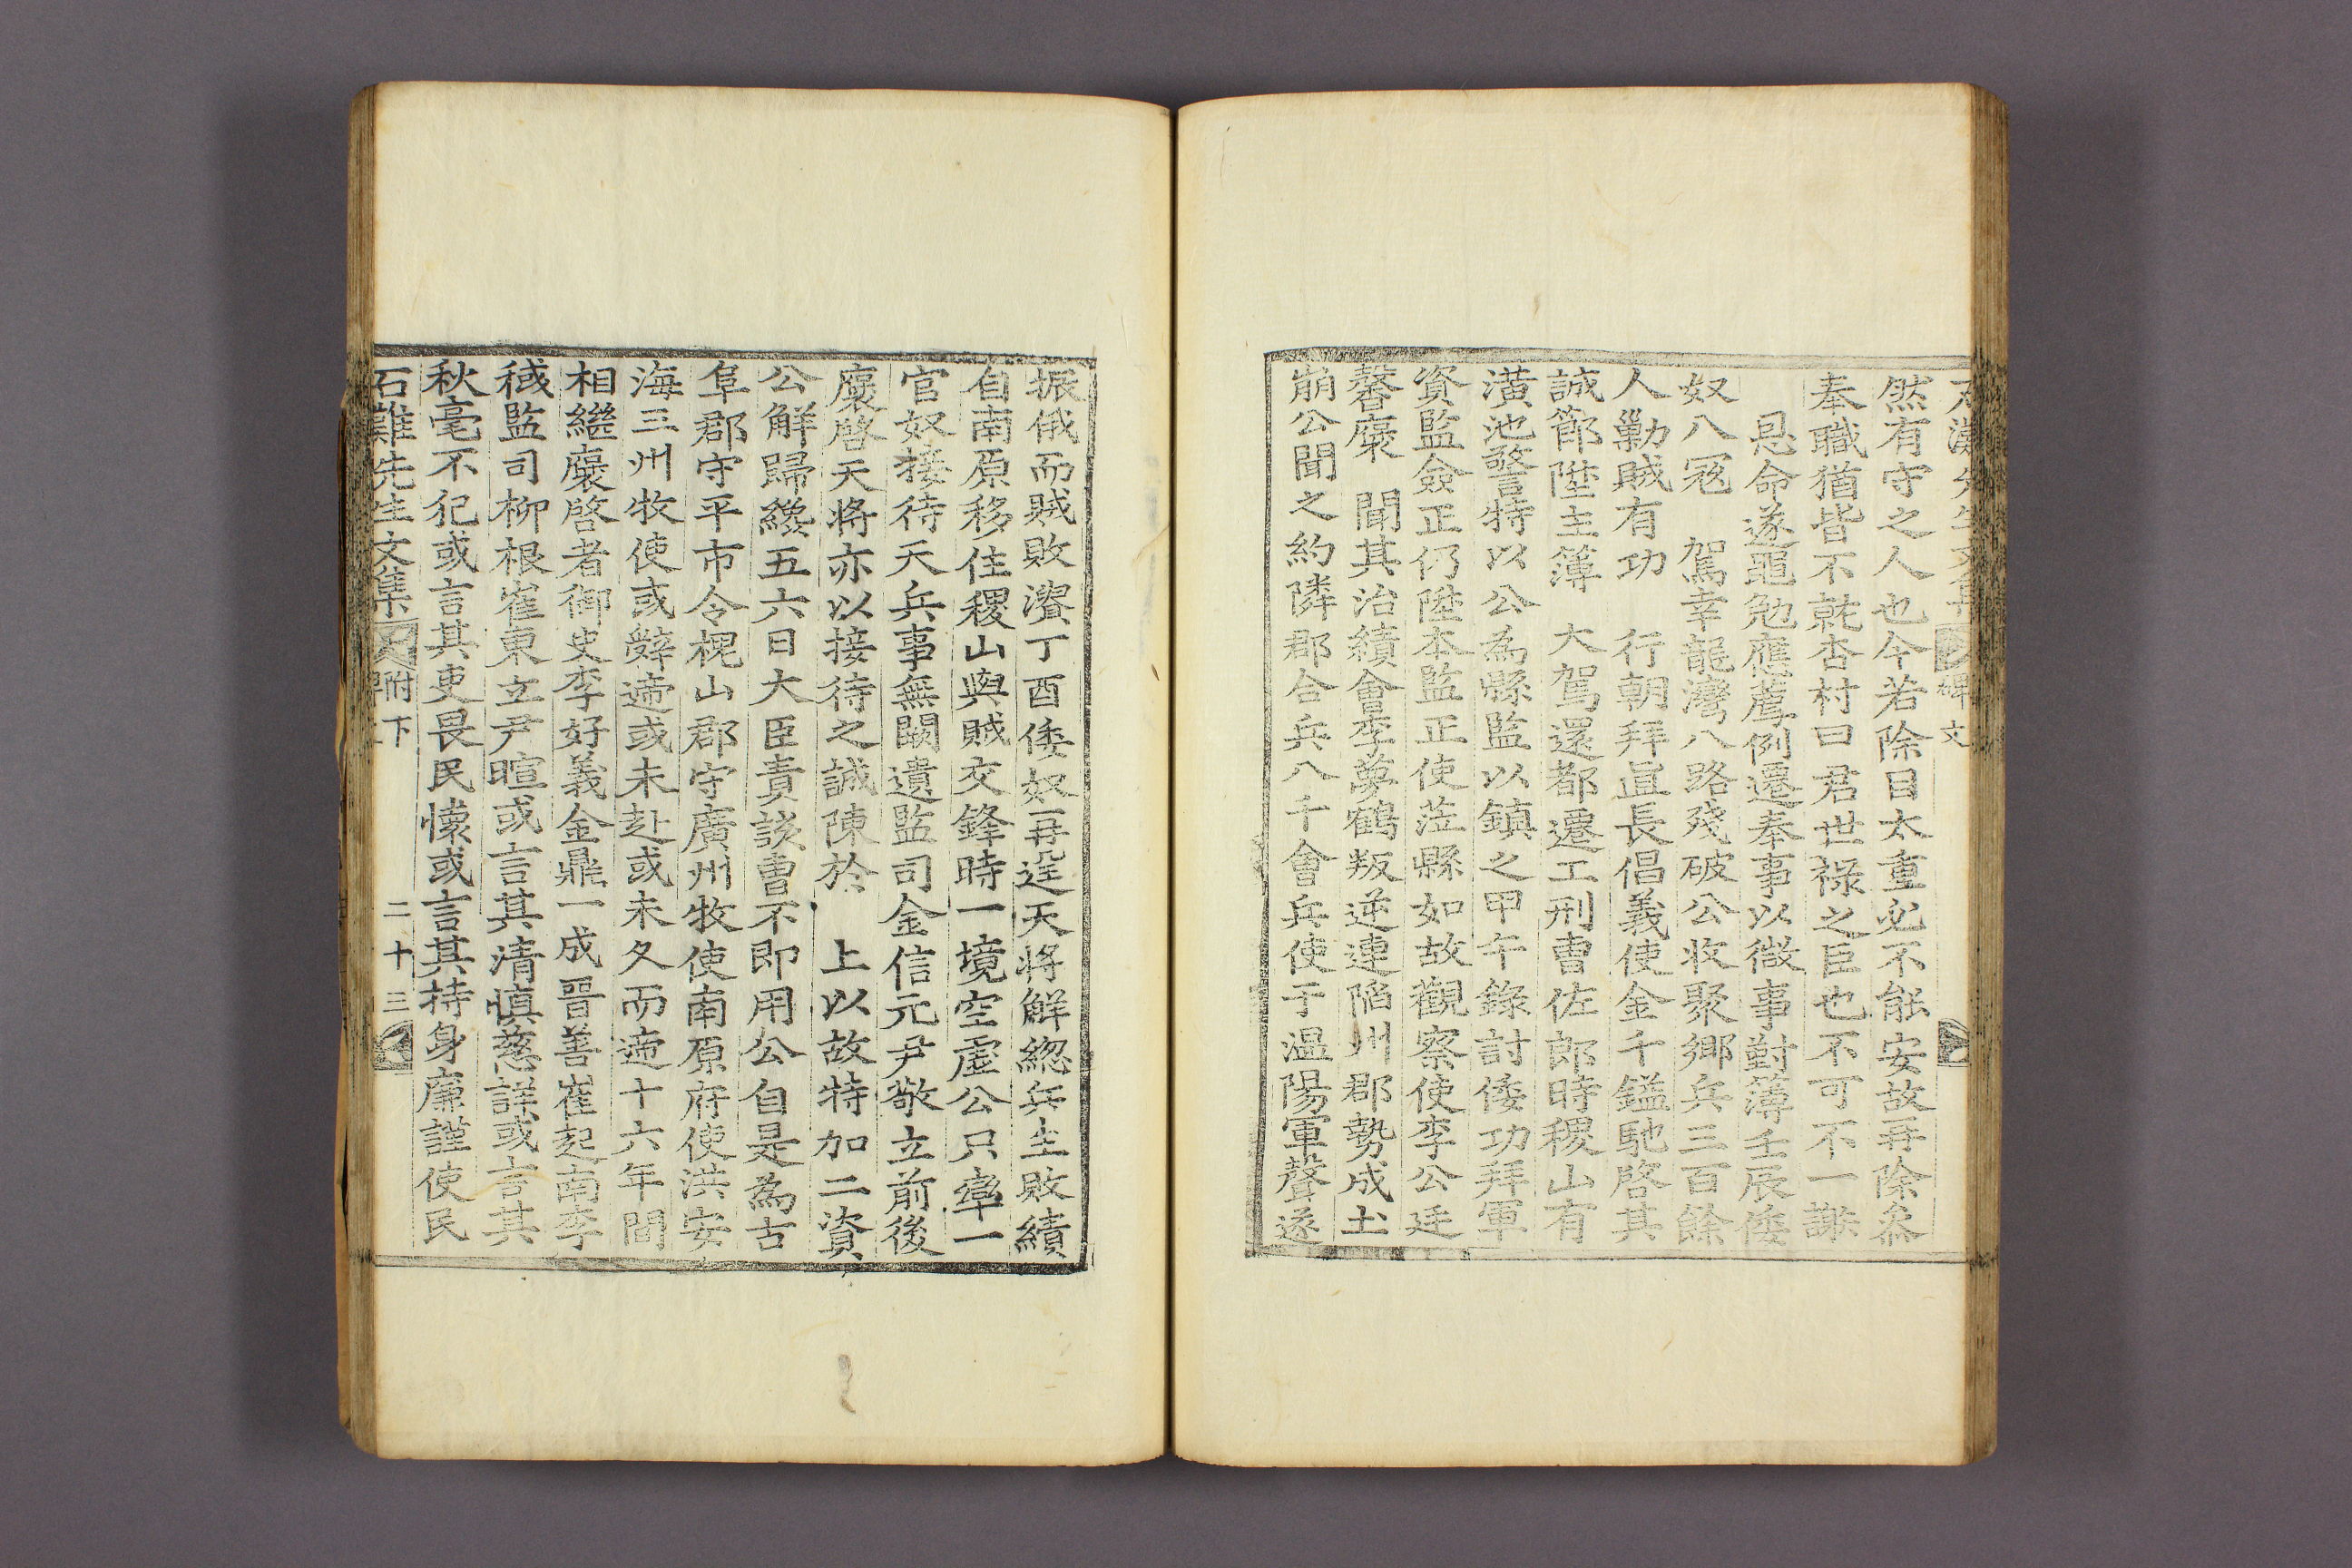 然有守之人也今若除目太重必不能安故再除叅
奉職猶皆不就杏村曰君世祿之臣也不可不一謝
恩命遂黽勉應薦例遷奉事以微事對簿壬辰倭
奴入寇 駕幸龍灣八路殘破公收聚鄉兵三百餘
人勦賊有功 行朝拜直長倡義使金千鎰馳啓其
誠節陞主簿 大駕還都遷工刑曹佐郎時稷山有
潢池警特以公為縣監以鎮之甲午錄討倭功拜軍
資監僉正仍陞本監正使莅縣如故觀察使李公廷
馨褒 聞其治績會李夢鶴叛逆連陷州郡勢成土
崩公聞之約隣郡合兵八千會兵使于温陽軍聲遂
振俄而賊敗潰丁酉倭奴再逞天將解緫兵生敗績
自南原移住稷山與賊交鋒時一境空虛公只率一
官奴接待天兵事無闕遺監司金信元尹敬立前後
褒啓天將亦以接待之誠陳於 上以故特加二資
公解歸纔五六日大臣責該曹不即用公自是為古
阜郡守平市令槐山郡守廣州牧使南原府使洪安
海三州牧使或辭遞或未赴或未久而遞十六年間
相繼褒啓者御史李好義金鼎一成晋善崔起南李
稶監司柳根崔東立尹暄或言其清慎慈詳或言其
秋毫不犯或言其吏畏民懷或言其持身廉謹使民
石灘先生文集 附下 二十三